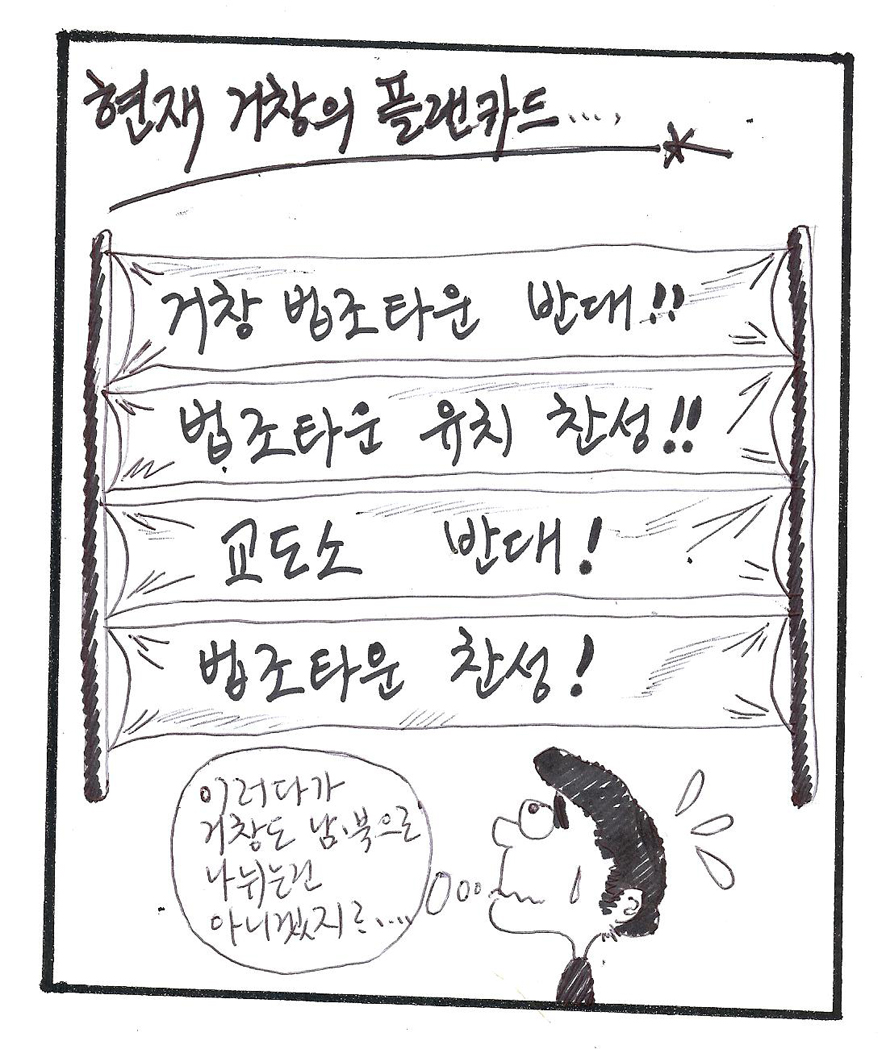 현재 거창의 플랜카드....,
거창 법조타운 반대!!
법조타운 유치 찬성!!
교도소 반대!
법조타운 찬성!
이러다가
거창도 남·북으로
나뉘는건
아니겠지르....